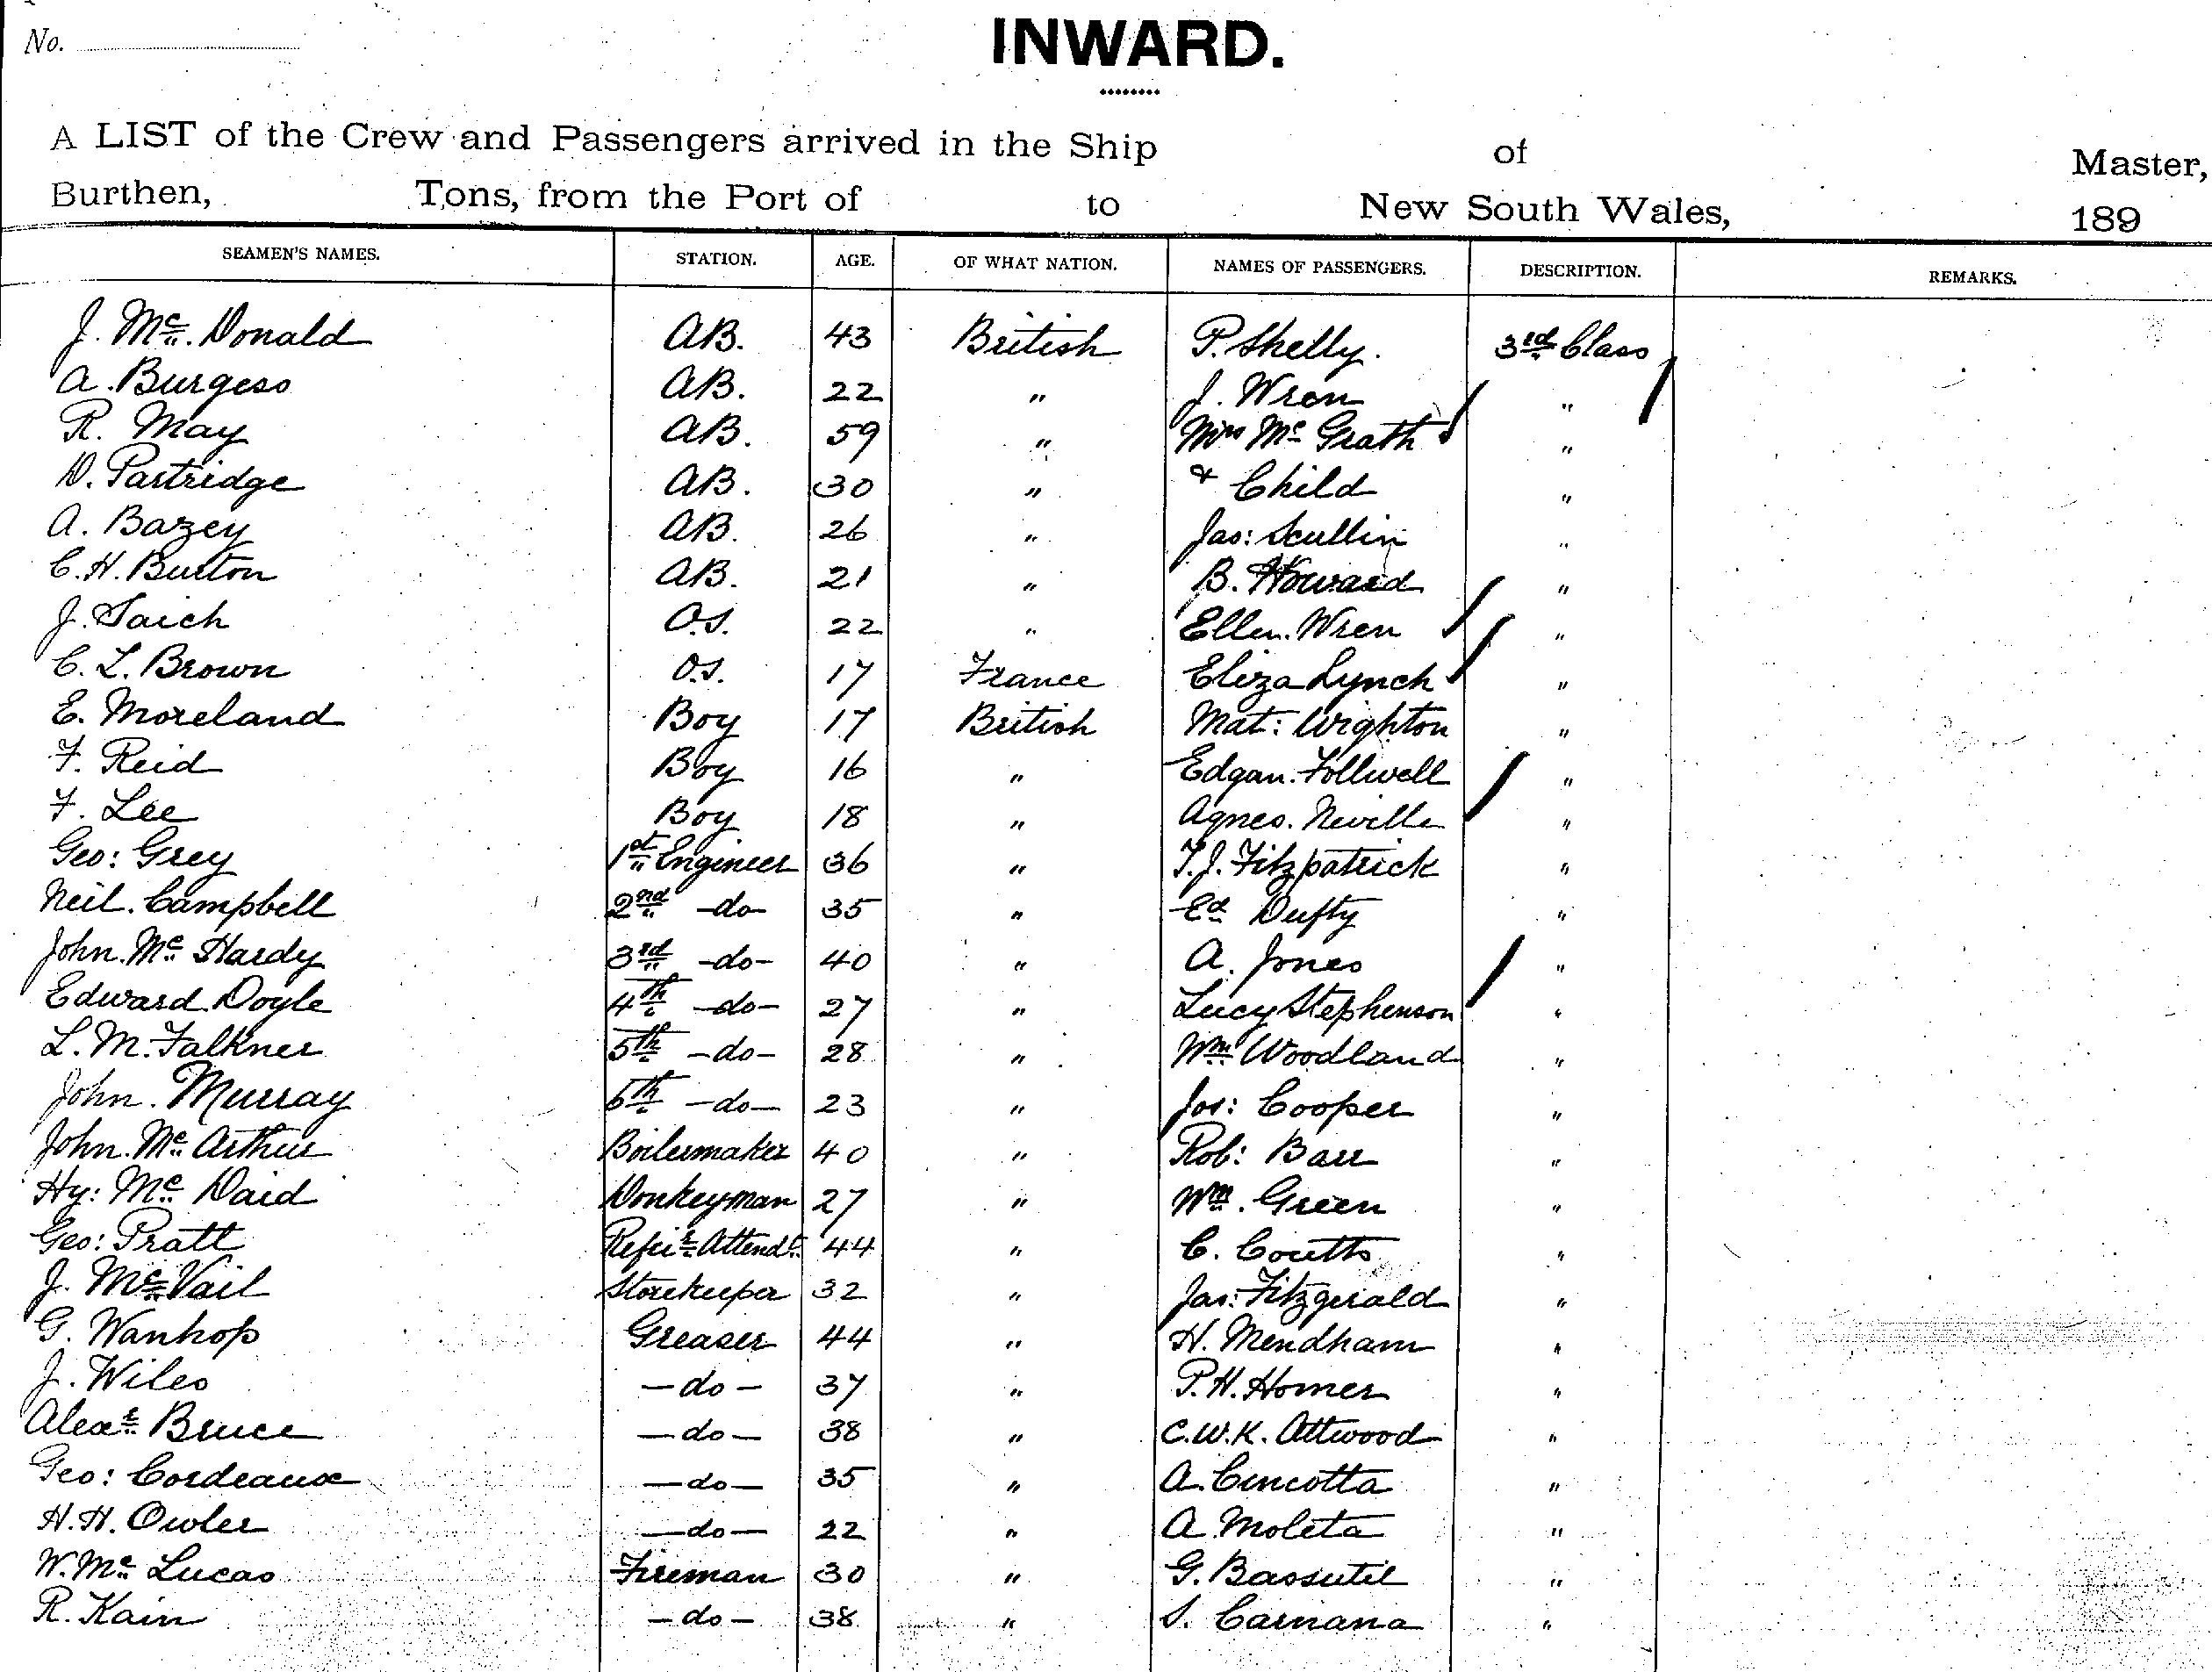 No.
INWARD.
A LIST of the Crew and Passengers arrived in the Ship of Master,
Burthen, Tons, from the Port of to New South Wales, 189
SEAMEN'S NAMES. STATION. AGE. OF WHAT NATION. NAMES OF PASSENGERS. DESCRIPTION. REMARKS.
J. Mc. Donald AB. 43 British P. Shelly. 3rd Class
A. Burgess AB. 22 " J. Wren "
R. May AB. 59 " Mrs Mc Grath "
D. Partridge AB. 30 " + Child "
A. Bazey AB. 26 " Jas: Scullin "
C. H. Burton AB. 21 " B. Howard "
J. Saich O.S. 22 " Ellen. Wren "
C. L. Brown O.S. 17 France Eliza Lynch "
E. Moreland Boy 17 British Mat: Wighton "
F. Reid Boy 16 " Edgar. Follwell "
F. Lee Boy 18 " Agnes. Neville "
Geo: Grey 1st Engineer 36 " T. J. Fitzpatrick "
Neil. Campbell 2nd -do- 35 " Ed Dufty "
John. Mc Hardy 3rd -do- 40 " A. Jones "
Edward. Doyle 4th -do- 27 " Lucy Stephenson "
L. M. Falkner 5th -do- 28 " Wm Woodland "
John. Murray 6th -do- 23 " Jos: Cooper "
John. Mc Arthur Boilermaker 40 " Rob: Barr "
Hy: Mc Daid Donkeyman 27 " Wm. Green "
Geo: Pratt Refrir Attendt. 44 " C. Coutts "
J. Mc Vail Storekeeper 32 " Jas: Fitzgerald "
G. Wanhop Greaser 44 " H. Mendham "
J. Wiles -do- 37 " P. H. Homer "
Alexr Bruce -do- 38 " C. W. K. Attwood "
Geo: Cordeaux -do- 35 " A. Cincotta "
H. H. Owler -do- 22 " A. Moleta "
W. Mc Lucas Fireman 30 " G. Bassutil "
R. Kain -do- 38 " S. Carnana "